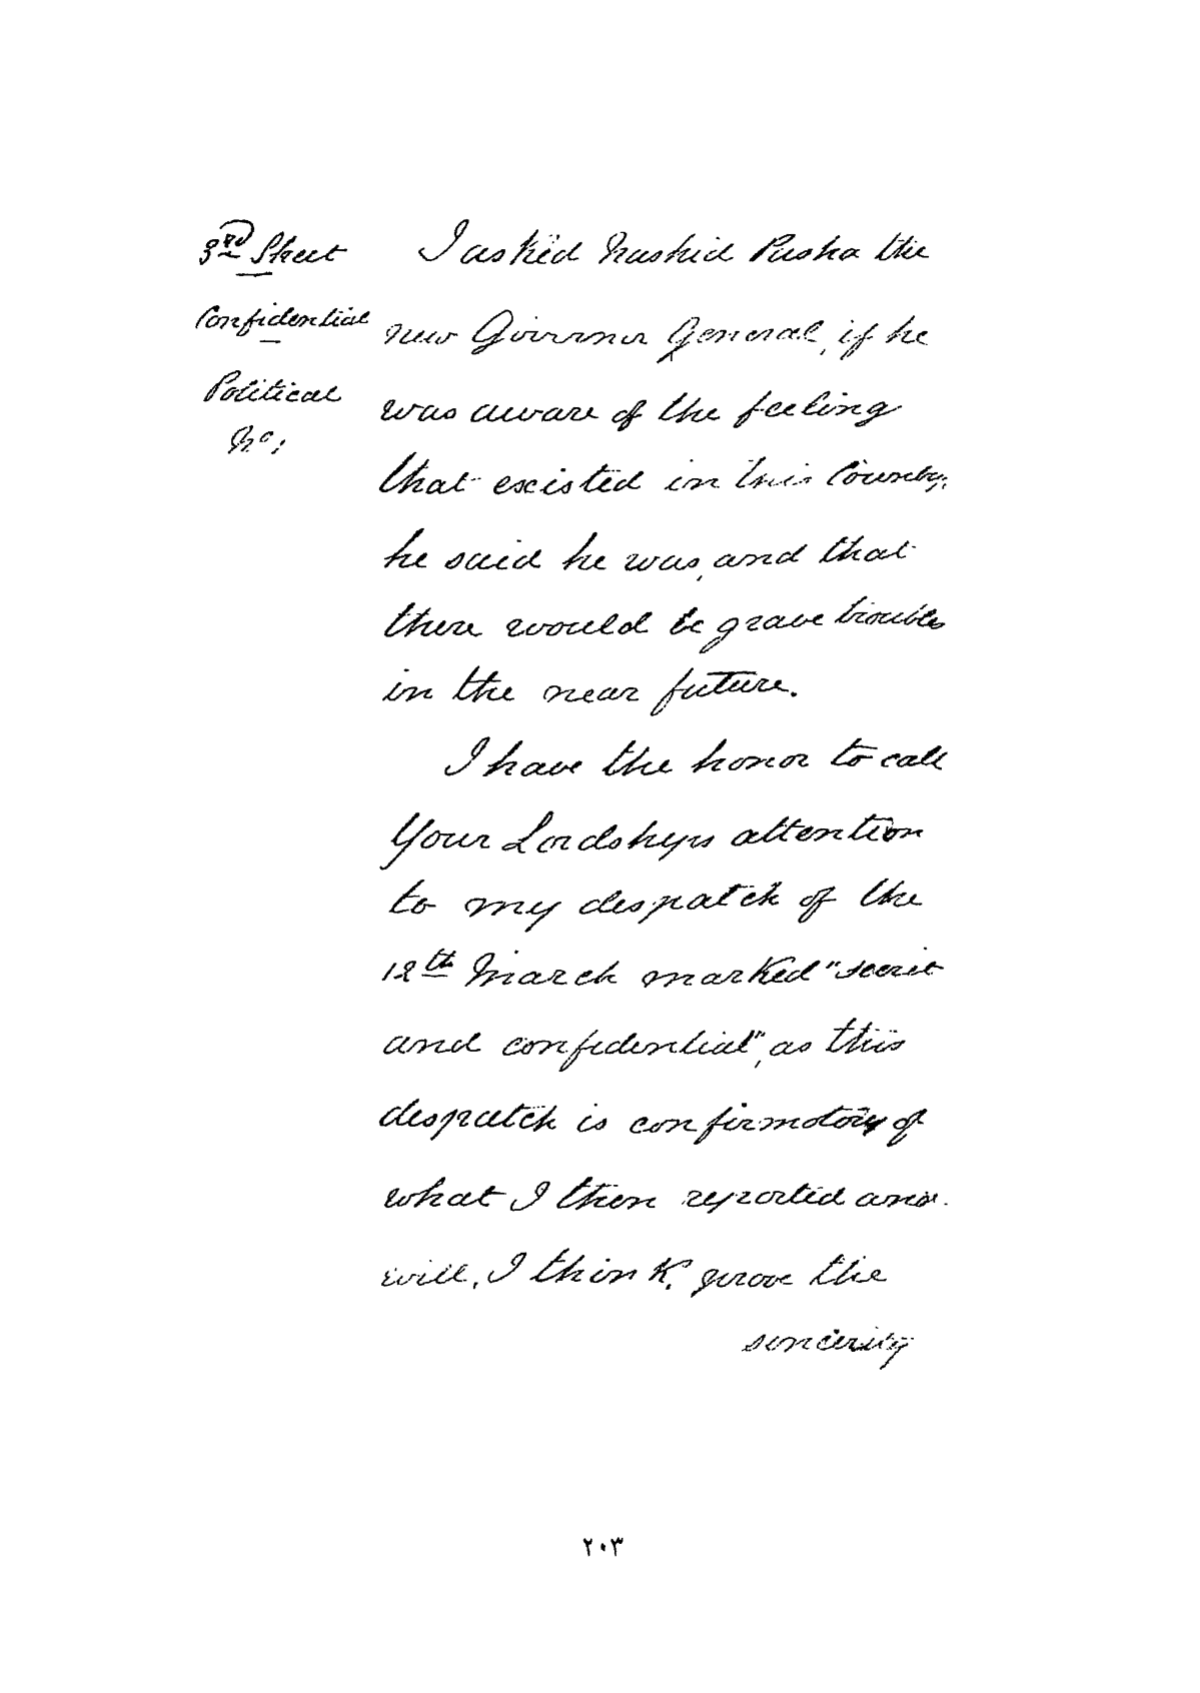 3rd Sheet
Confidential
Political
No;
I asked Nashid Pasha the
new Governor General, if he
was aware of the feeling
that excisted in this Country,
he said he was, and that
there would be grave troubles
in the near future.
I have the honor to call
Your Lordships attention
to my despatch of the
12th March marked "secret
and confidential", as this
despatch is confirmotory of
what I then reported and
will, I think, prove the
sincerity
٢٠٣